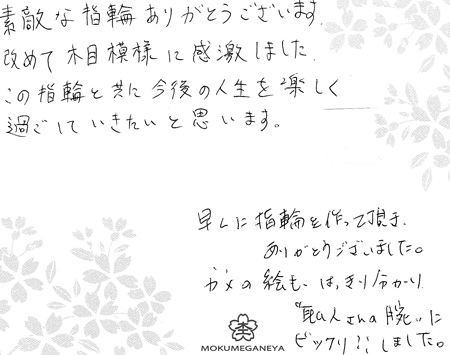 素敵な指輪ありがとうございます.
改めて木目模様に感激しました.
この指輪と共に今後の人生を楽しく
過ごしていきたいと思います。
早くに指輪を作って頂き.
ありがとうございました。
ガメの絵も、はっきり分かり
"職人さんの腕"に
ビックリ!!しました。
MOKUMEGANEYA